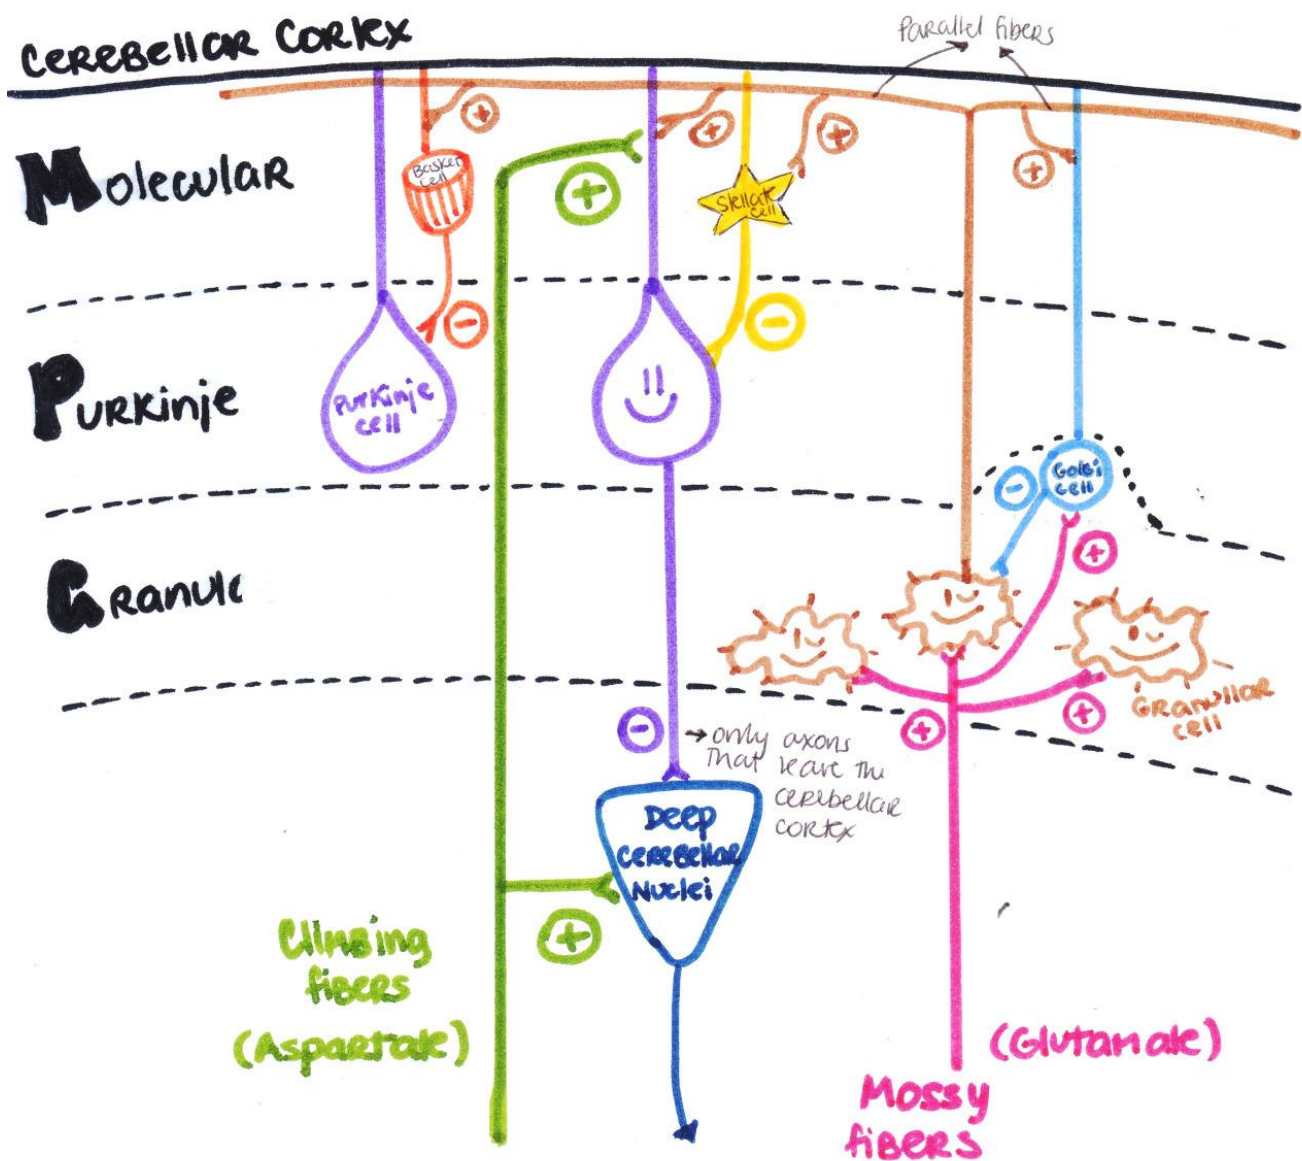 CEREBELLAR CORTEX
Parallel fibers
Molecular
Basket
cell
Stellate
cell
Purkinje
Purkinje
cell
Golgi
cell
Granule
Granular
cell
→ only axons
that leave the
cerebellar
cortex
Deep
cerebellar
Nuclei
Climbing
fibers
(Aspartate)
(Glutamate)
Mossy
fibers
+
+
+
+
+
-
-
-
+
-
+
+
+
-